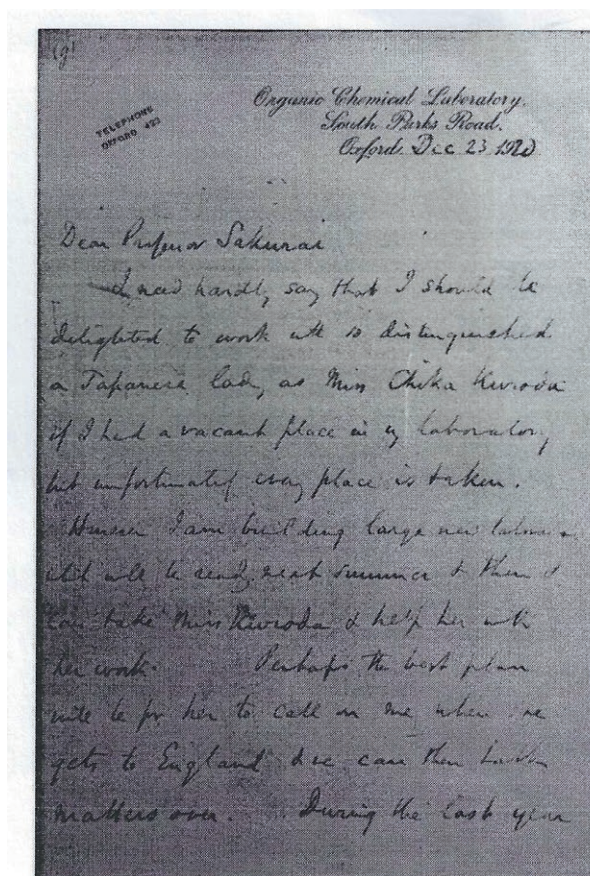 (9)
TELEPHONE
OXFORD 423
Organic Chemical Laboratory,
South Parks Road,
Oxford. Dec 23 1920
Dear Professor Sakurai
I need hardly say that I should be
delighted to work with so distinguished
a Japanese lady as Miss Chika Kuroda
if I had a vacant place in my laboratory
but unfortunately every place is taken.
However I am building large new
which will be ready next summer & then I
can take Miss Kuroda & help her with
her work. Perhaps the best plan
will be for her to call on me when she
gets to England & we can then talk
matters over. During the last year